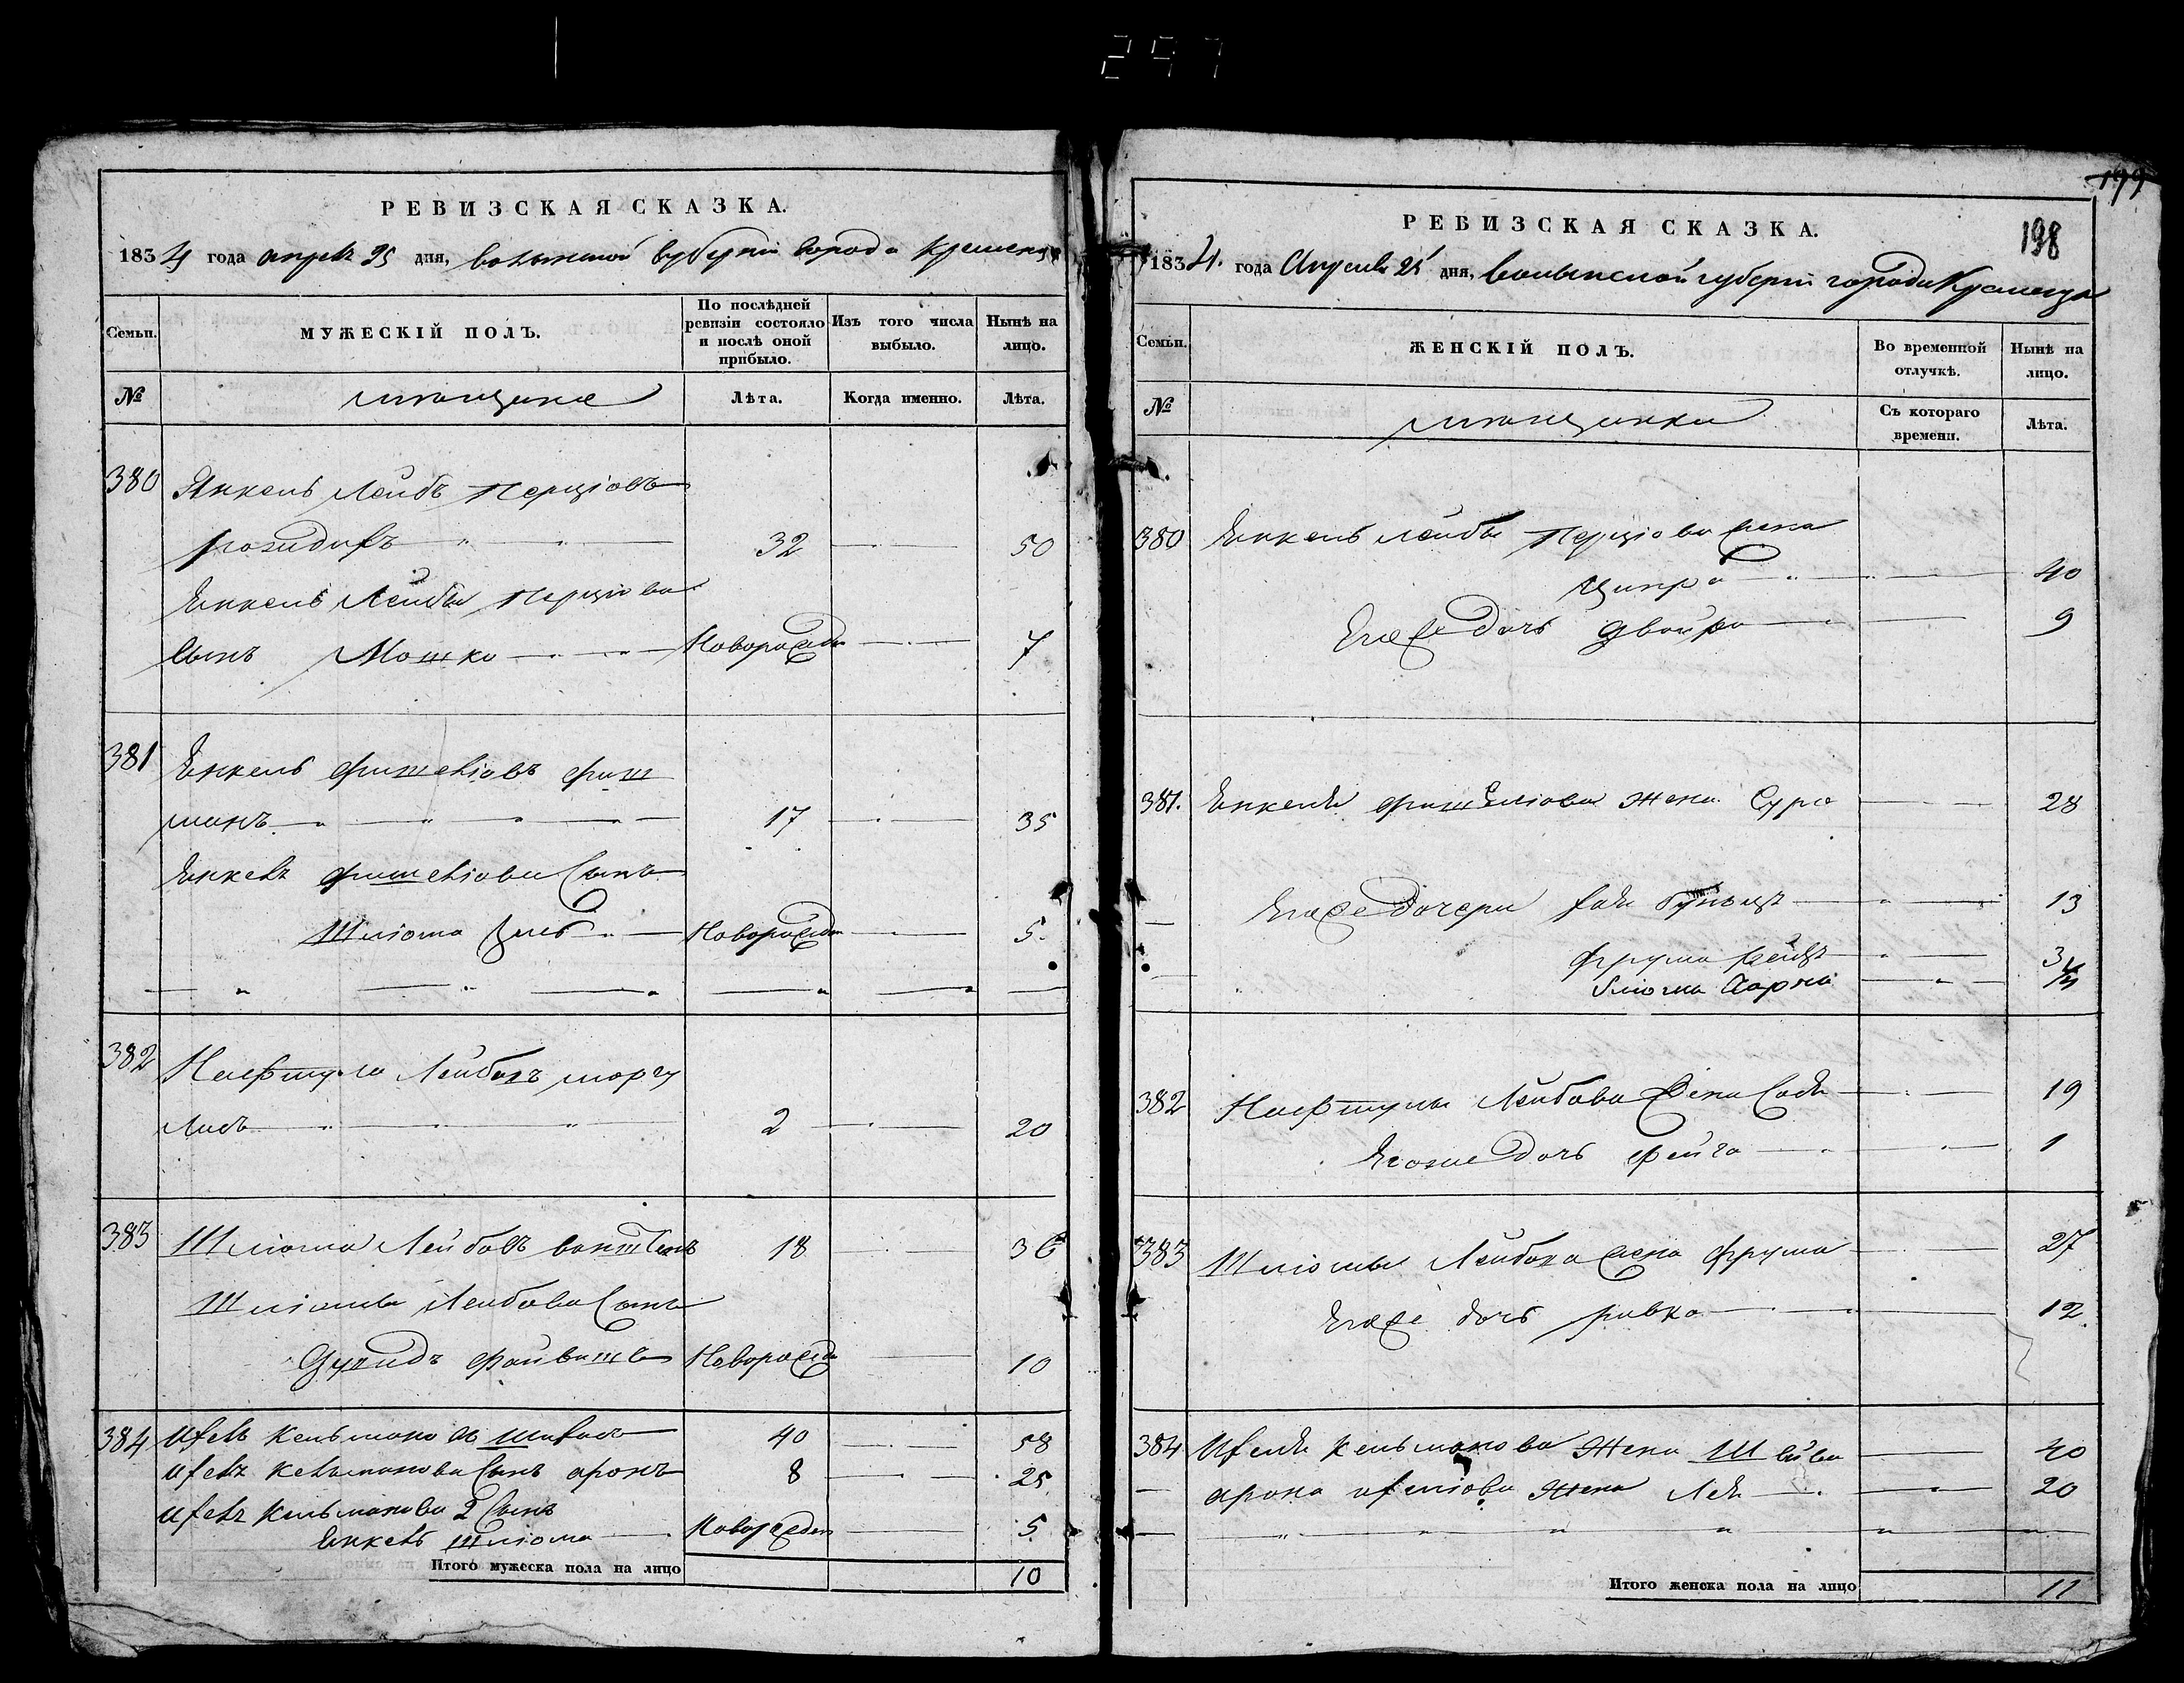 297
РЕВИЗСКАЯ СКАЗКА.
1834 года апрель 25 дня, волынской губернiи города Кременца
Семьи. МУЖЕСКIЙ ПОЛЪ. По послѣдней ревизiи состояло и послѣ оной прибыло. Изъ того числа выбыло. Нынѣ на лицо.
№ мѣщане Лѣта. Когда именно. Лѣта.
380 Янкель Лейбъ Перцiовъ
32 50
Енкель Лейбы Перцiова
сынъ Мошко Новорожден 7
381 Енкель Фишелiовъ Фиш
манъ 17 35
Енкель Фишелiова Сынъ
Шлiома Новорожден 5
382 Нафтула Лейбовъ маргу
лисъ 2 20
383 Шлiома Лейбовъ 18 36
Шлiомы Лейбова Сынъ
Файвишъ Новорожден 10
384 Изель Кельмановъ 40 58
Изель Кельманова Сынъ аронъ 8 25
Изель Кельманова 2 Сынъ
Енкель Шлiома Новорожден 5
Итого мужеска пола на лицо 10
199
198
РЕВИЗСКАЯ СКАЗКА.
1834. года Апреля 25 дня, волынской губернiи города Кременца
Семьи. ЖЕНСКIЙ ПОЛЪ. Во временной отлучкѣ. Нынѣ на лицо.
№ мѣщанки Съ котораго времени. Лѣта.
380 Енкель лейбы Перцiова жена
Ципра 40
Егоже дочь Двойра 9
381. Енкеля Фишелiова жена Сура 28
Егоже дочери 13
Фрума 3
382 Нафтулы Лейбова жена 19
Егоже дочь Фейга 1
383 Шлiомы Лейбова жена Фрума 27
Егоже дочь ривка 12
384 Изеля Кельманова жена 40
арона изелiова жена Лея 20
Итого женска пола на лицо 11